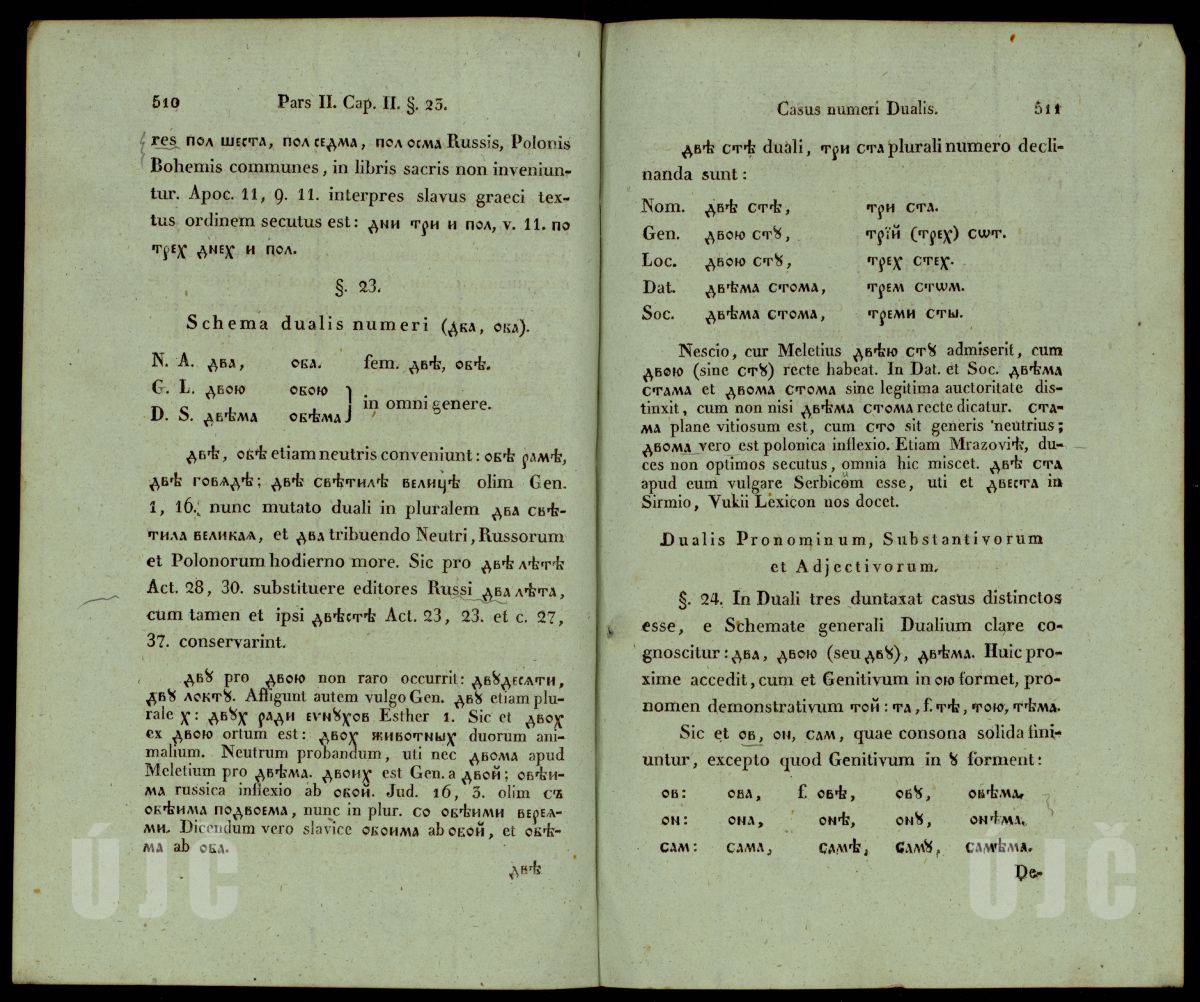 510 Pars II. Cap. II. §. 23.
res пол шеста, пол седма, пол осма Russis, Polonis
Bohemis communes, in libris sacris non inveniun-
tur. Apoc. 11, 9. 11. interpres slavus graeci tex-
tus ordinem secutus est: дни три и пол, v. 11. по
трех днех и пол.
§. 23.
Schema dualis numeri (два, оба).
N. A. два, оба. fem. двѣ, обѣ.
G. L. двою обою
in omni genere.
D. S. двѣма обѣма
двѣ, обѣ etiam neutris conveniunt: обѣ рамѣ,
двѣ говѧдѣ; двѣ свѣтилѣ велицѣ olim Gen.
1, 16. nunc mutato duali in pluralem два свѣ-
тила великаѧ, et два tribuendo Neutri, Russorum
et Polonorum hodierno more. Sic pro двѣ лѣтѣ
Act. 28, 30. substituere editores Russi два лѣта,
cum tamen et ipsi двѣстѣ Act. 23, 23. et c. 27,
37. conservarint.
двꙋ pro двою non raro occurrit: двꙋдесѧти,
двꙋ локтꙋ. Affigunt autem vulgo Gen. двꙋ etiam plu-
rale х: двꙋх ради еѵнꙋхов Esther 1. Sic et двох
ex двою ortum est: двох животных duorum ani-
malium. Neutrum probandum, uti nec двома apud
Meletium pro двѣма. двоих est Gen. a двой; обѣи-
ма russica inflexio ab обой. Jud. 16, 3. olim съ
обѣима подвоема, nunc in plur. со обѣими вереѧ-
ми. Dicendum vero slavice обоима ab обой, et обѣ-
ма ab оба.
двѣ
Casus numeri Dualis. 511
двѣ стѣ duali, три ста plurali numero decli-
nanda sunt:
Nom. двѣ стѣ, три ста.
Gen. двою стꙋ, трїй (трех) сѡт.
Loc. двою стꙋ, трех стех.
Dat. двѣма стома, трем стѡм.
Soc. двѣма стома, треми сты.
Nescio, cur Meletius двѣю стꙋ admiserit, cum
двою (sine стꙋ) recte habeat. In Dat. et Soc. двѣма
стама et двома стома sine legitima auctoritate dis-
tinxit, cum non nisi двѣма стома recte dicatur. ста-
ма plane vitiosum est, cum сто sit generis neutrius;
двома vero est polonica inflexio. Etiam Mrazoviѣ, du-
ces non optimos secutus, omnia hic miscet. двѣ ста
apud eum vulgare Serbicom esse, uti et двеста in
Sirmio, Vukii Lexicon nos docet.
Dualis Pronominum, Substantivorum
et Adjectivorum.
§. 24. In Duali tres duntaxat casus distinctos
esse, e Schemate generali Dualium clare co-
gnoscitur: два, двою (seu двꙋ), двѣма. Huic pro-
xime accedit, cum et Genitivum in ою formet, pro-
nomen demonstrativum той: та, f. тѣ, тою, тѣма.
Sic et ов, он, сам, quae consona solida fini-
untur, excepto quod Genitivum in ꙋ forment:
ов: ова, f. овѣ, овꙋ, овѣма.
он: она, онѣ, онꙋ, онѣма.
сам: сама, самѣ, самꙋ, самѣма.
De-
ÚJČ
ÚJČ